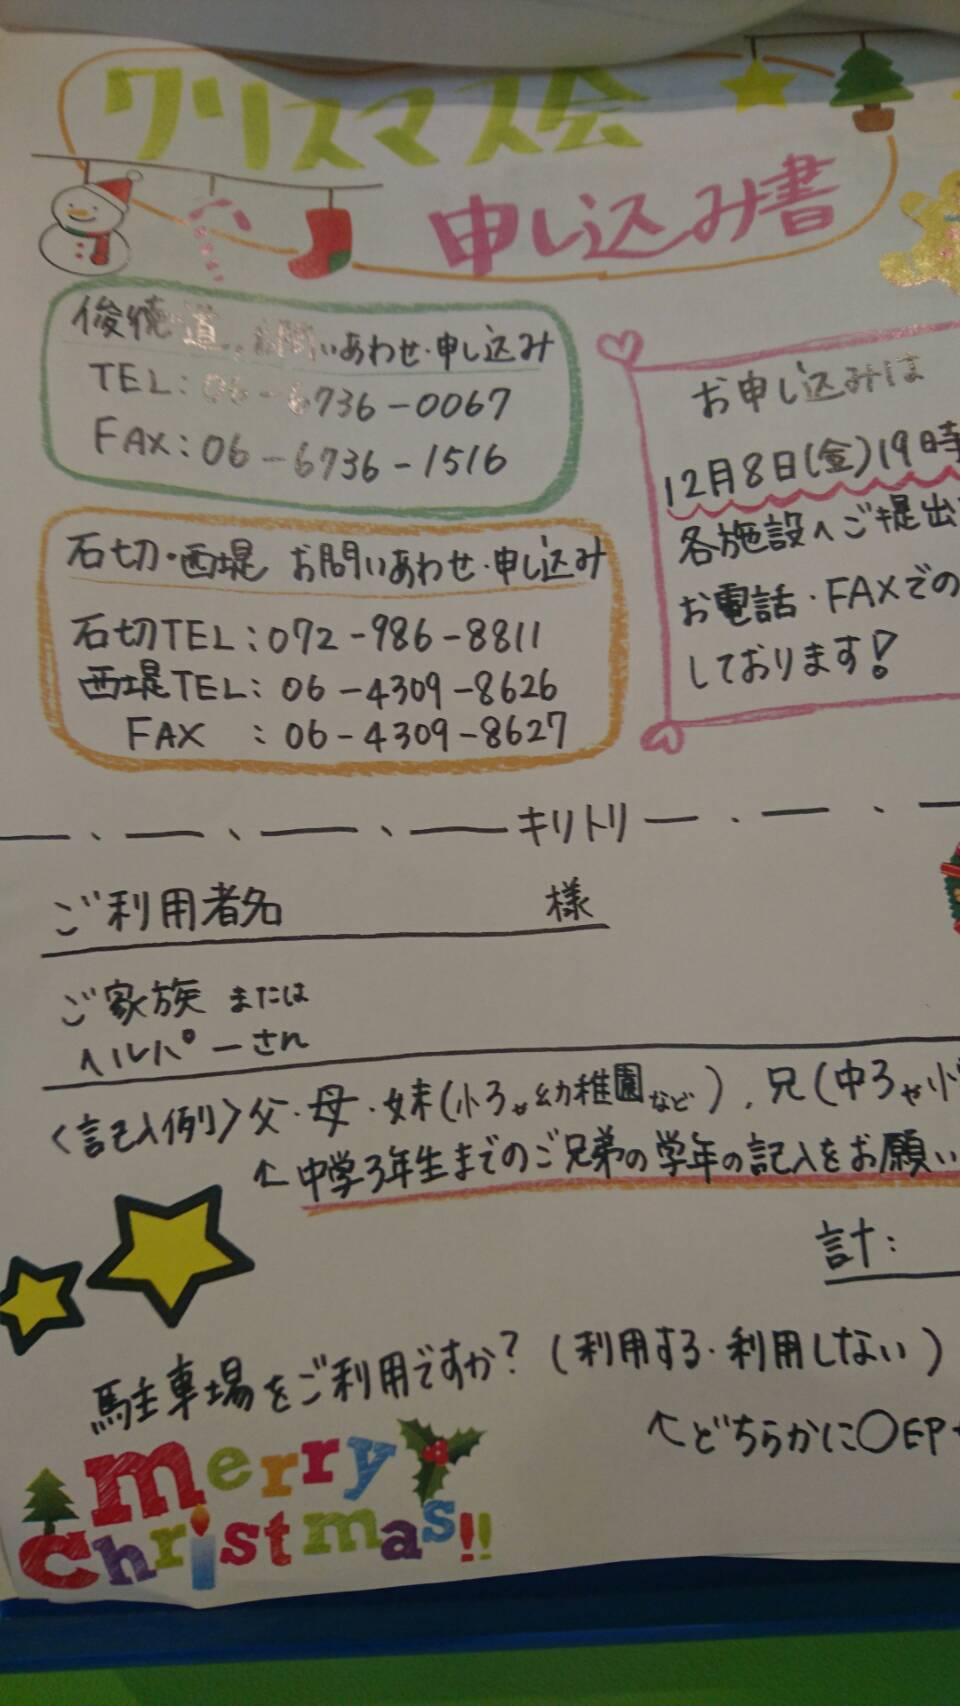 クリスマス会
申し込み書
俊徳道 お問いあわせ・申し込み
TEL:06-6736-0067
FAX:06-6736-1516
お申し込みは
12月8日(金)19時
各施設へご提出
お電話・FAXでの
しております!
石切・西堤 お問いあわせ・申し込み
石切TEL:072-986-8811
西堤TEL:06-4309-8626
FAX :06-4309-8627
キリトリ
ご利用者名 様
ご家族 または
ヘルパーさん
〈記入例〉父・母・妹(小3や幼稚園など)、兄(中3や小
↑中学3年生までのご兄弟の学年の記入をお願い
計:
駐車場をご利用ですか?(利用する・利用しない)
↑どちらかに○印
merry
christmas!!